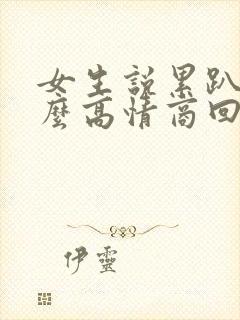 女生説累趴
麼高情商回
伊靈